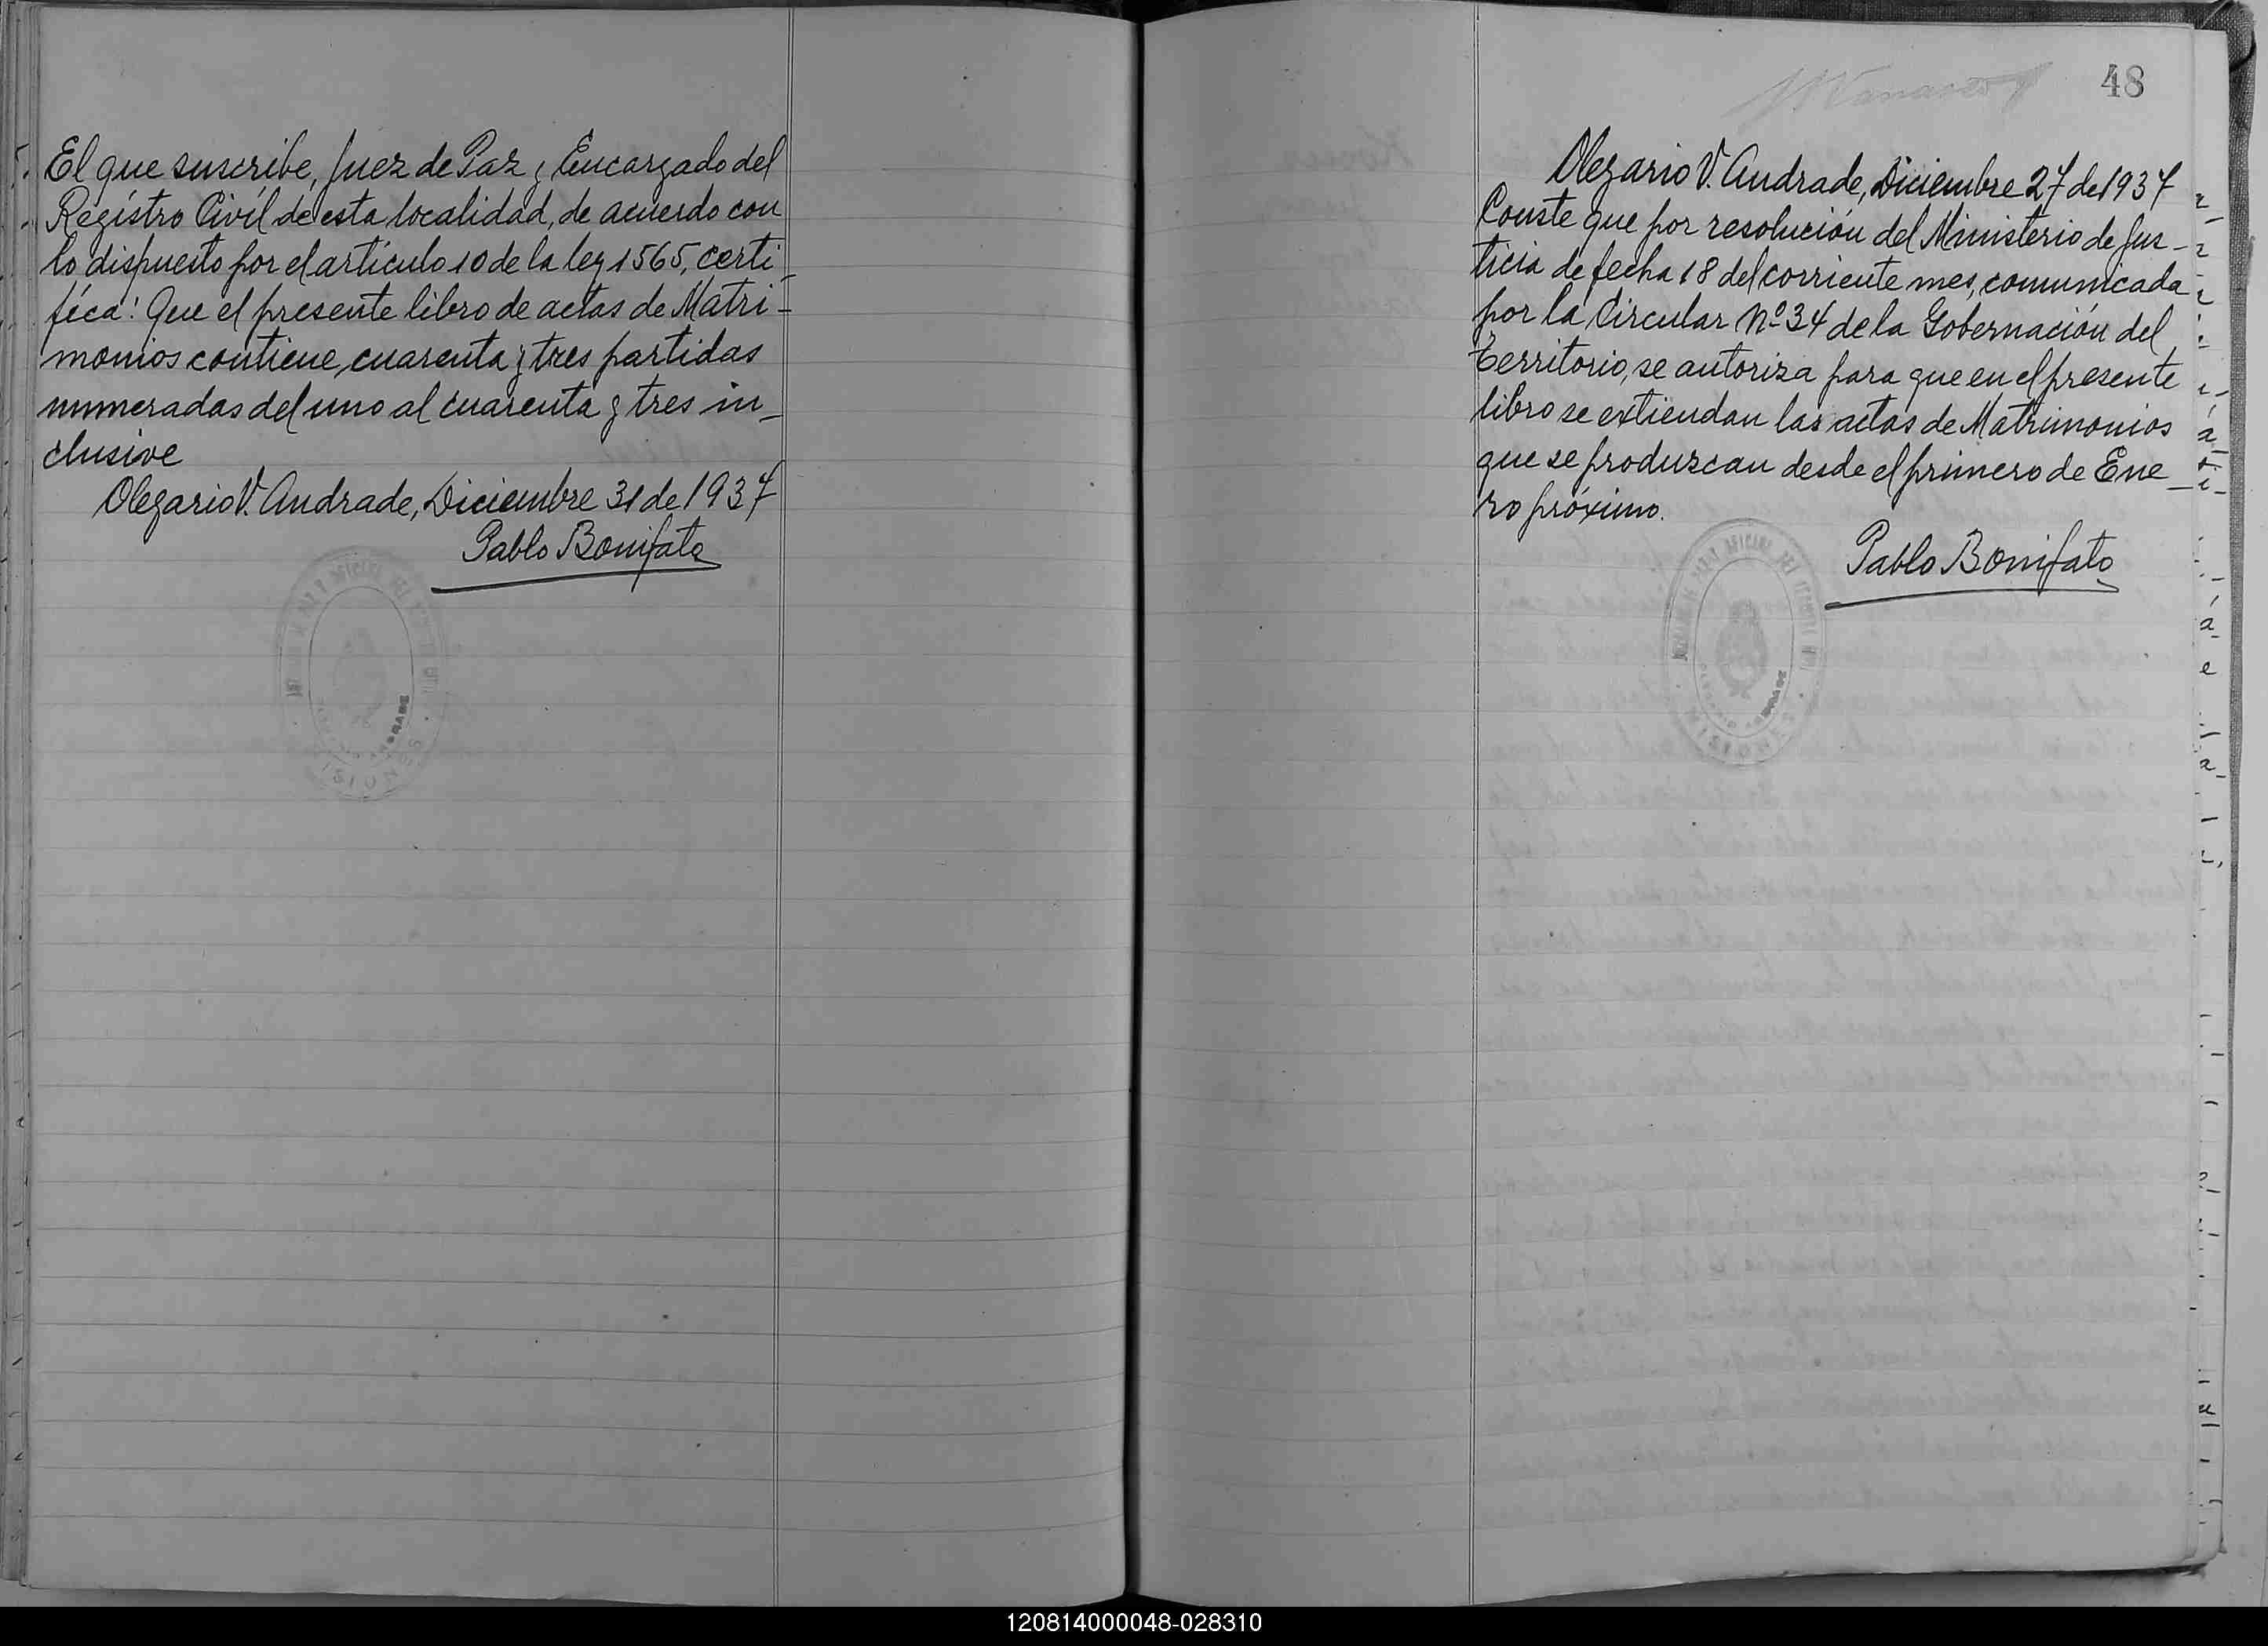 El que suscribe, Juez de Paz y Encargado del
Registro Civil de esta localidad, de acuerdo con
lo dispuesto por el artículo 10 de la ley 1565, certi-
fica: Que el presente libro de actas de Matri-
monios contiene cuarenta y tres partidas
numeradas del uno al cuarenta y tres in-
clusive
Olegario V. Andrade, Diciembre 31 de 1937
Pablo Bonifato
MISIONES
48
Olegario V. Andrade, Diciembre 27 de 1937
Conste que por resolución del Ministerio de Jus-
ticia de fecha 18 del corriente mes, comunicada
por la Circular Nº 34 de la Gobernación del
Territorio, se autoriza para que en el presente
libro se extiendan las actas de Matrimonios
que se produzcan desde el primero de Ene-
ro próximo.
Pablo Bonifato
MISIONES
120814000048-028310